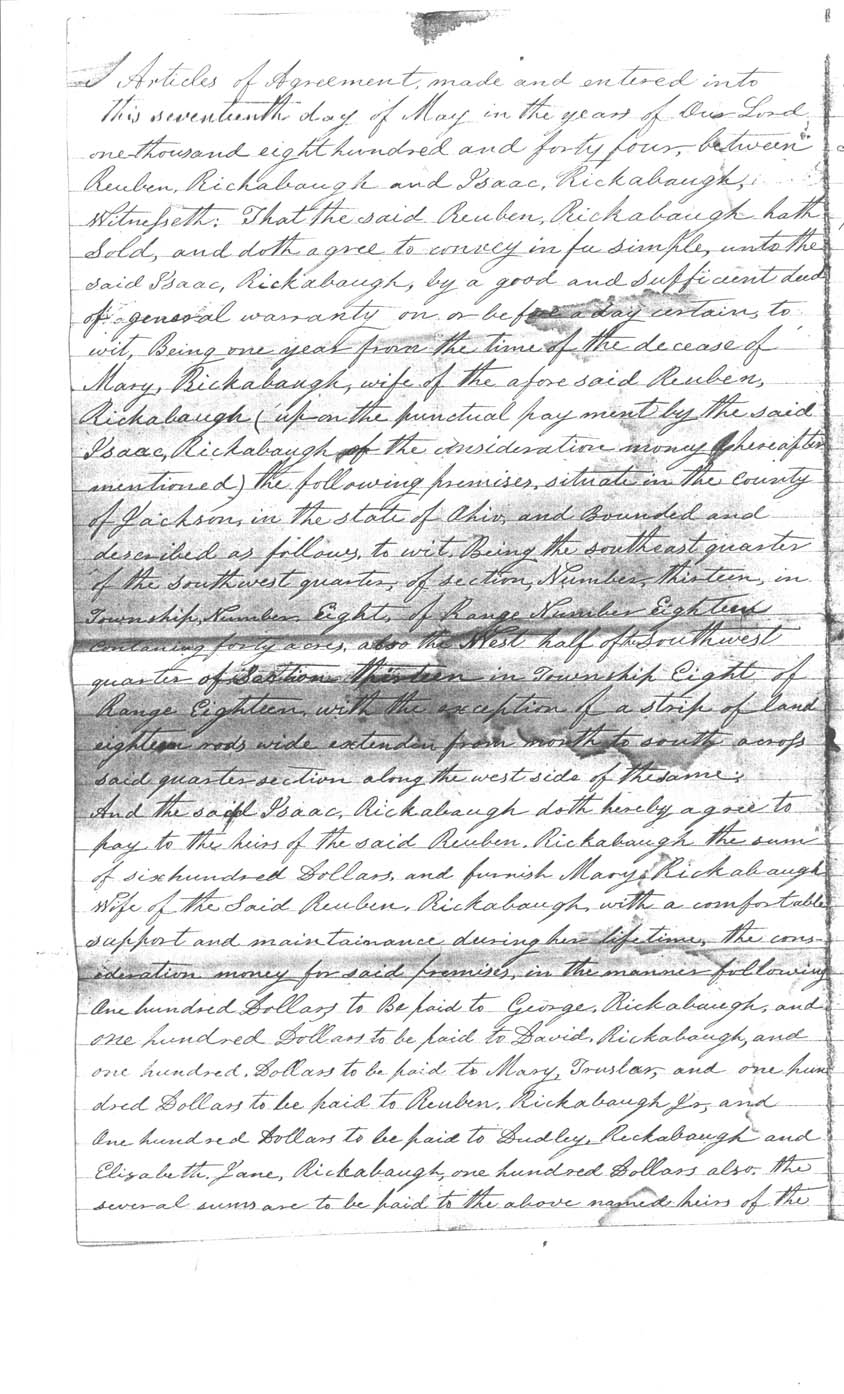 Articles of Agreement, made and entered into
this seventeenth day of May in the years of Our Lord,
one thousand eight hundred and forty four, between
Reuben, Rickabaugh and Isaac, Rickabaugh,
Witnesseth: That the said Reuben, Rickabaugh hath
Sold, and doth agree to convey in fee simple, unto the
said Isaac, Rickabaugh, by a good and sufficient deed
of general warranty on or before a day certain, to
wit, Being one year from the time of the decease of
Mary, Rickabaugh, wife of the afore said Reuben,
Rickabaugh (upon the punctual pay ment by the said
Isaac, Rickabaugh of the consideration money hereafter
mentioned) the following premises, situate in the county
of Jackson, in the state of Ohio, and Bounded and
described as follows, to wit, Being the southeast quarter
of the southwest quarter, of section, Number, thirteen, in
Township, Number, Eight, of Range Number Eighteen
contaning forty acres, also the West half of the southwest
quarter of Section thirteen in Township Eight of
Range Eighteen, with the exception of a strip of land
eighteen rods wide extendin from north to south across
said quarter section along the west side of the same;
And the said Isaac, Rickabaugh doth hereby agree to
pay to the heirs of the said Reuben, Rickabaugh the sum
of six hundred Dollars, and furnish Mary, Rickabaugh
Wife of the Said Reuben, Rickabaugh, with a comfortable
support and maintainance during her lifetime, the cons-
ideration money for said premises, in the manner following
One hundred Dollars to Be paid to George, Rickabaugh, and
one hundred Dollars to be paid to David, Rickabaugh, and
one hundred, Dollars to be paid to Mary, Truslar, and one hun
dred Dollars to be paid to Reuben, Rickabaugh Jr, and
One hundred Dollars to be paid to Dudley, Rickabaugh and
Elizabeth, Jane, Rickabaugh, one hundred Dollars also. the
several sums are to be paid to the above named heirs of the